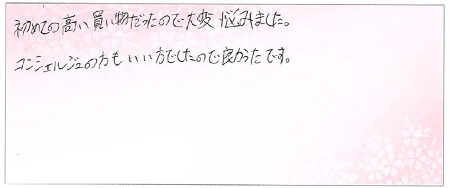 初めての高い買い物だったので大変悩みました。
コンシェルジュの方もいい方でしたので良かったです。